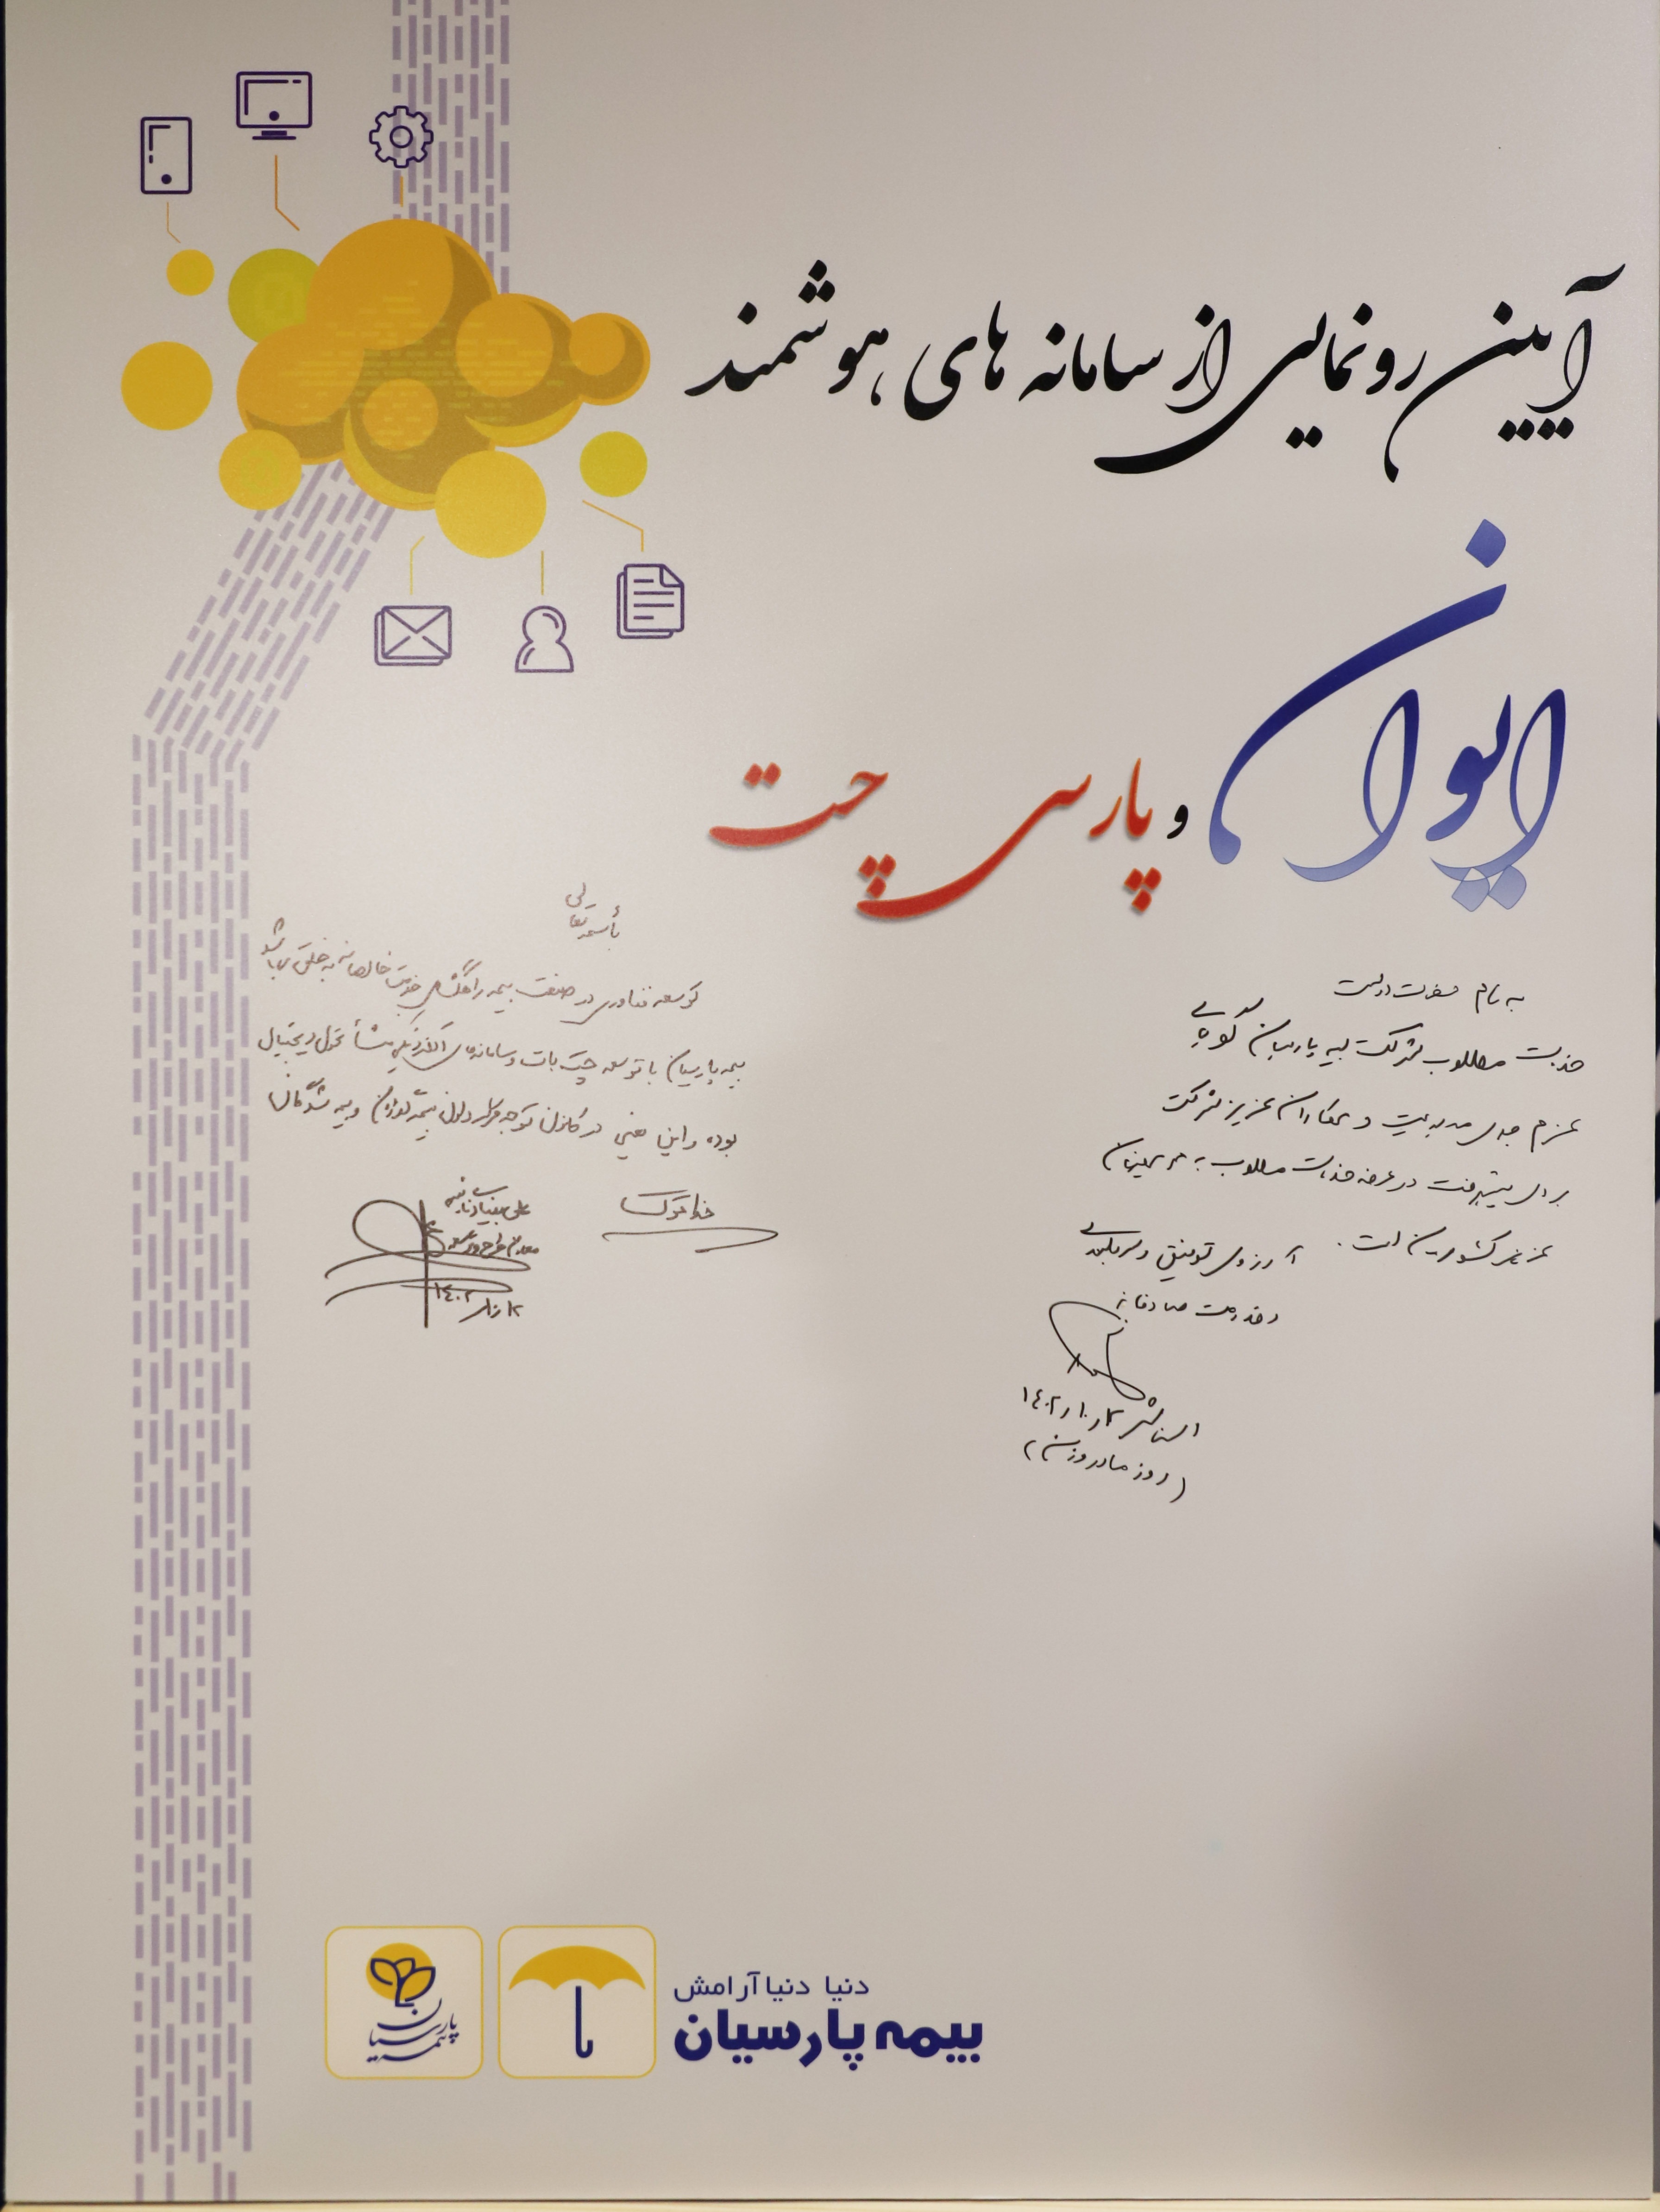 آیین رونمایی از سامانه های هوشمند
ایوان و پارسی چت
به نام حضرت دوست
خدمت مطلوب شرکت بیمه پارسیان گویای
عزم جدی مدیریت و همکاران عزیز شرکت
برای پیشرفت در عرضه خدمات مطلوب به هم میهنان
عزیز کشورمان است. آرزوی توفیق و سربلندی
و خدمت صادقانه
۱۴۰۲/۱۰/۱۳
(روز مادر و زن)
بأسمه تعالی
توسعه فناوری در صنعت بیمه راهگشای خدمت خالصانه به خلق می باشد
بیمه پارسیان با توسعه چت بات و سامانه های الکترونیکی منشأ تحول دیجیتال
بوده و این یعنی در کانون توجه قرار دادن بیمه گذاران و بیمه شدگان
خدا قوت
معاون طرح و توسعه
دنیا دنیا آرامش
بیمه پارسیان
بیمه پارسیان